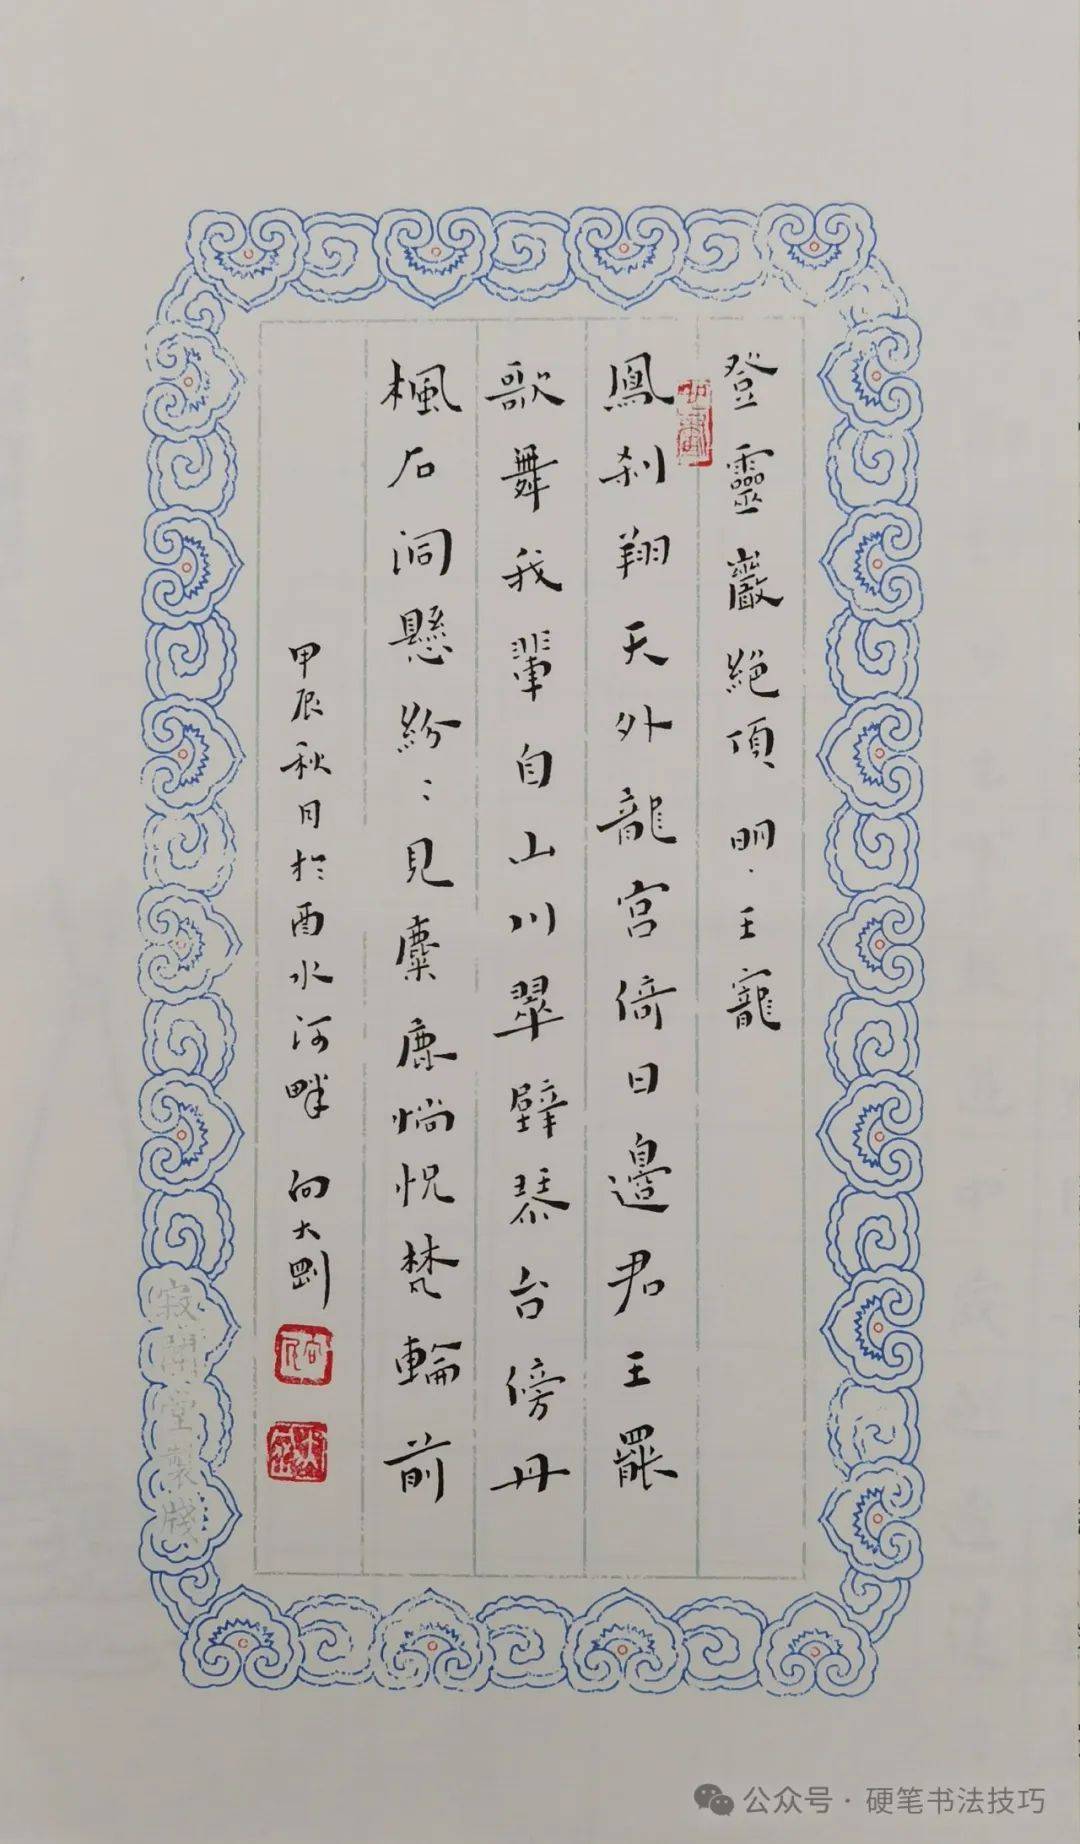 登靈巖絕頂 明·王寵
鳳刹翔天外龍宮倚日邊君王罷
歌舞我輩自山川翠壁琴台傍丹
楓石洞懸紛〻見麋鹿惝怳梵輪前
甲辰秋日於酉水河畔 向大剛
寂閑堂製牋
公众号·硬笔书法技巧